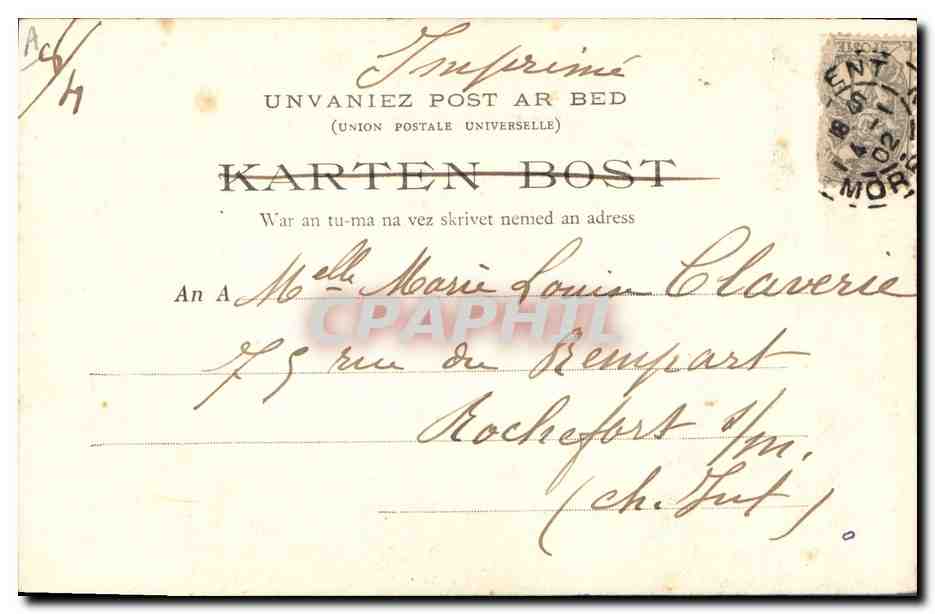 Imprimé
UNVANIEZ POST AR BED
(UNION POSTALE UNIVERSELLE)
KARTEN BOST
War an tu-ma na vez skrivet nemed an adress
An A Melle Marie Louise Claverie
75 rue du Rempart
Rochefort s/m.
(ch. Inf)
CPAPHIL
POSTE
ENT
8 4 02
MOR